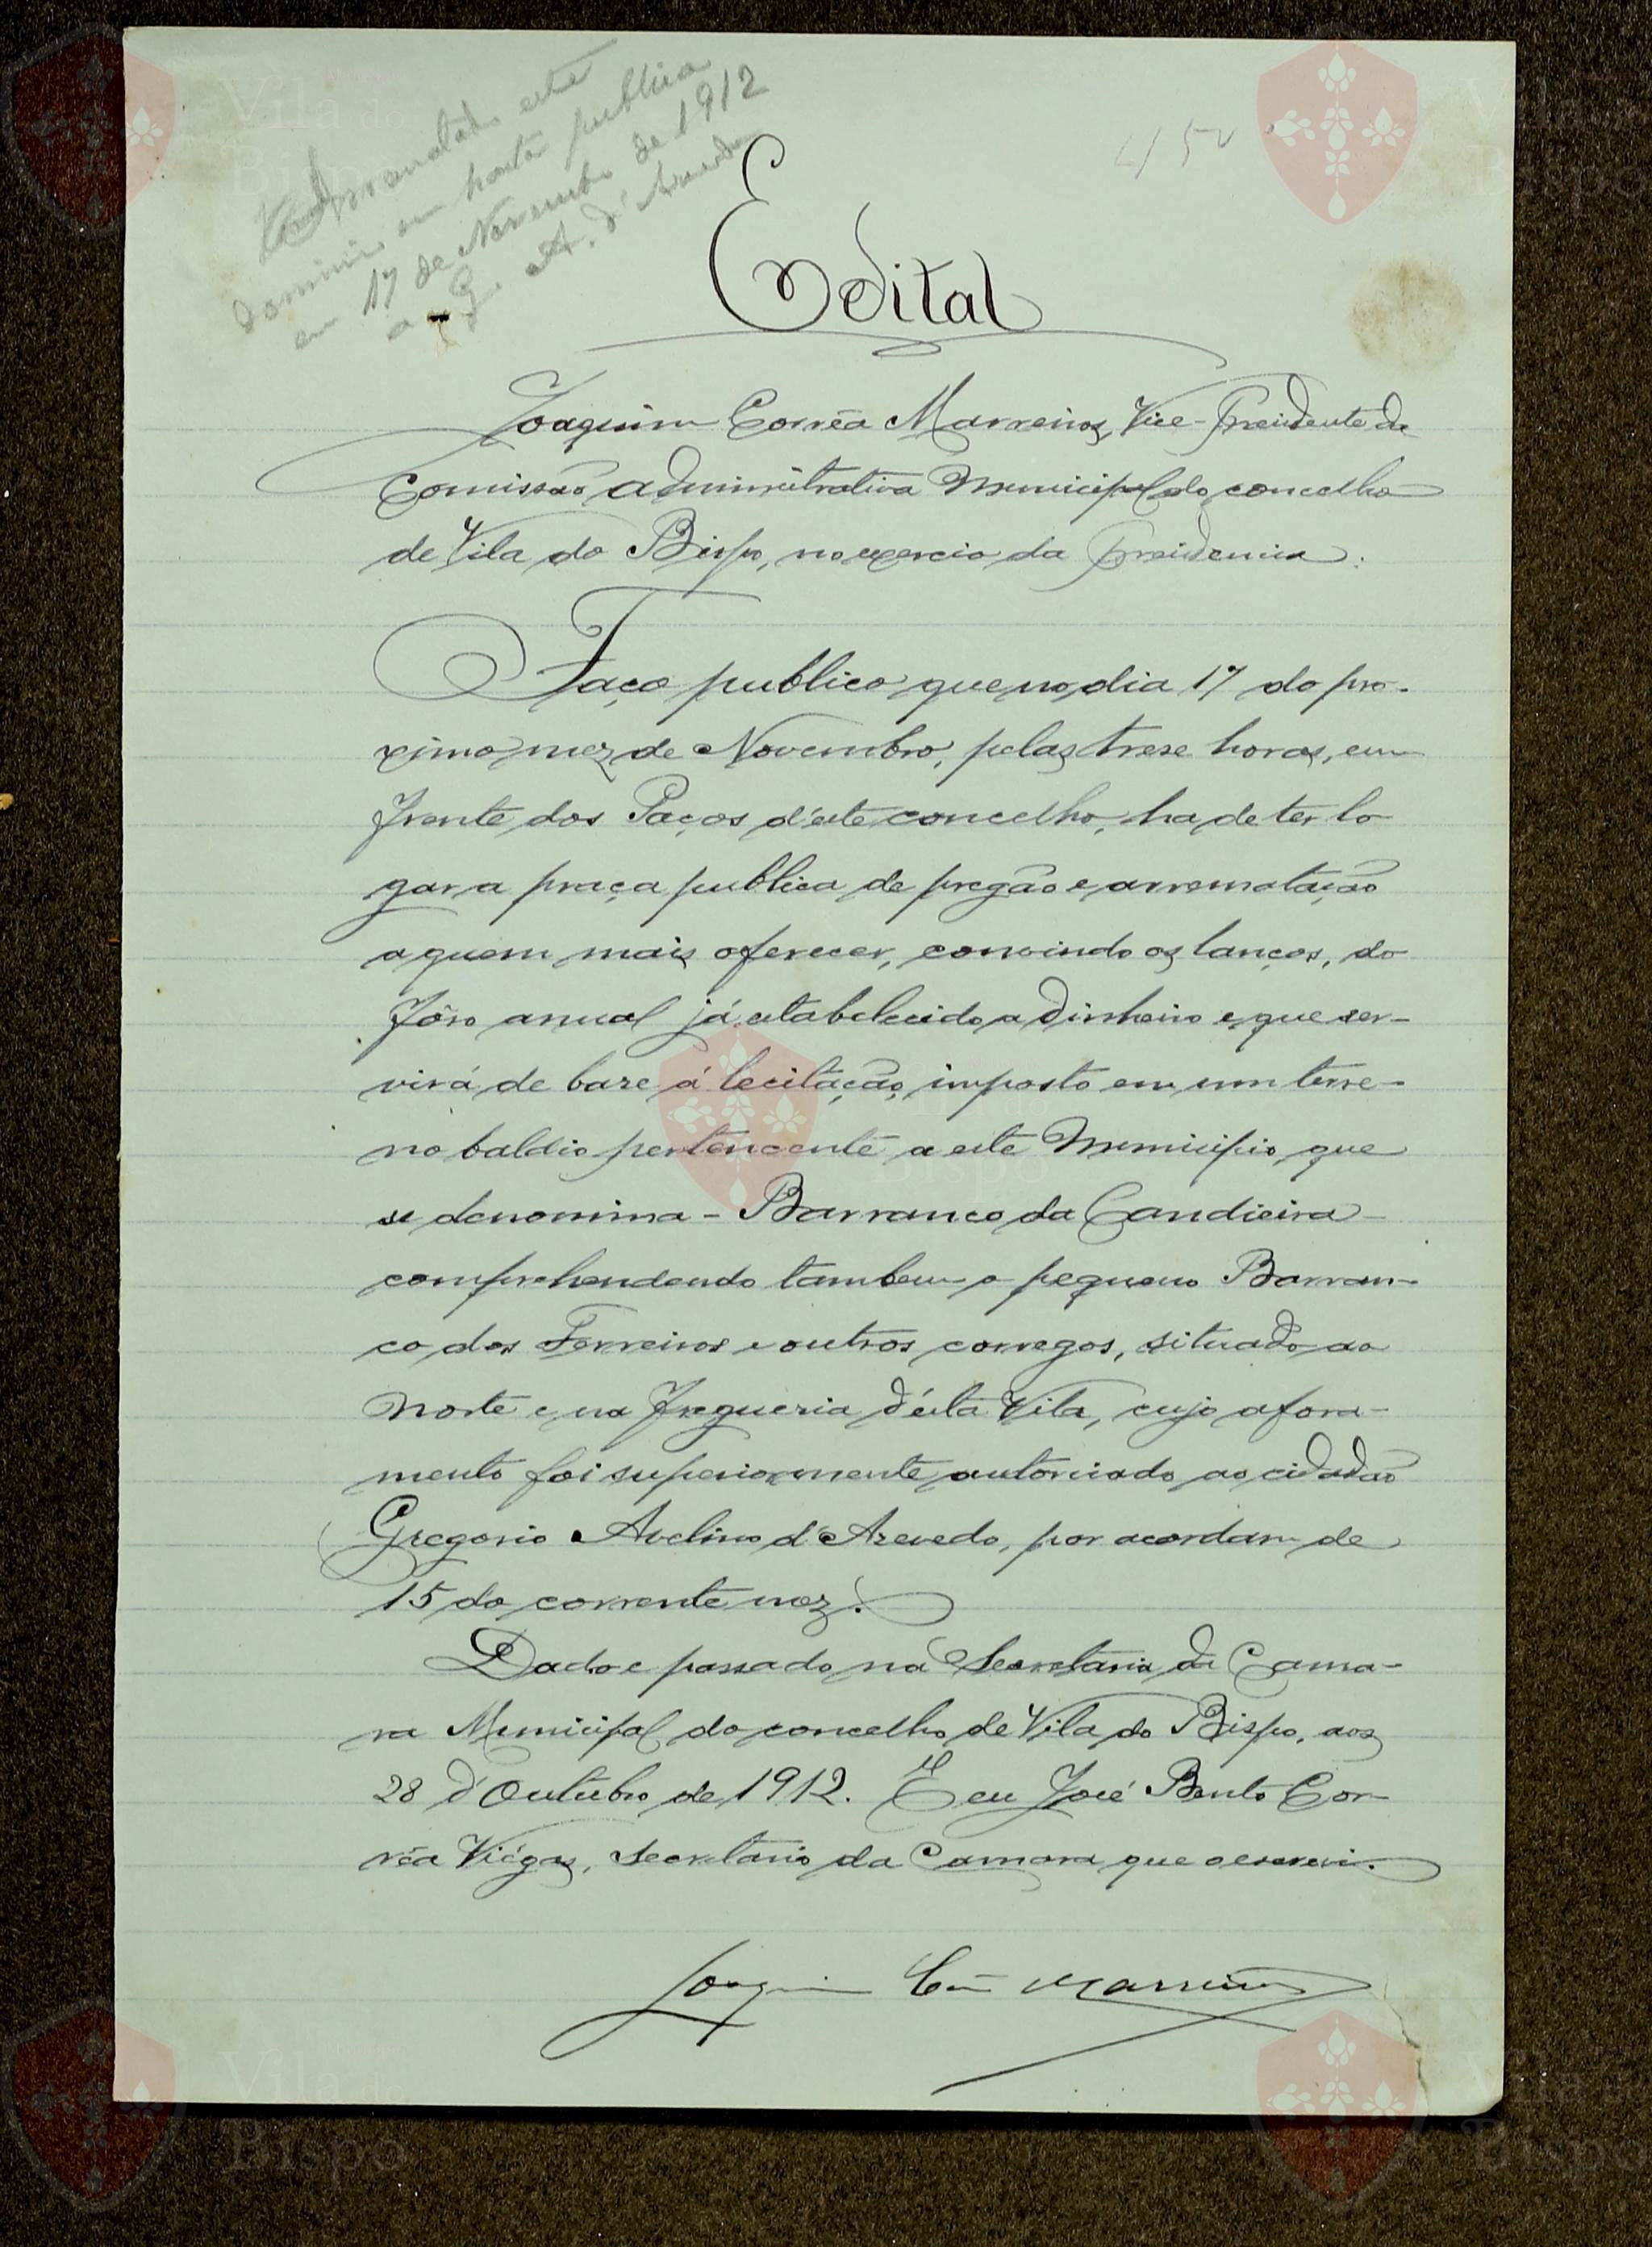 Arrematado este
dominio em hasta publica
em 17 de Novembro de 1912
a G. A. d'Azevedo
450
Edital
Joaquim Corrêa Marreiros, Vice-Presidente da
Comissão administrativa Municipal do concelho
de Vila do Bispo, no exercio da Presidencia:
Faço publico que no dia 17 do pro-
ximo mez de Novembro, pelas trese horas, em
frente dos Paços d'este concelho, ha de ter lo
gar a praça publica de pregão e arrematação
a quem mais oferecer, convindo os lanços, do
fôro anual já estabelecido a dinheiro e que ser-
virá de base á lecitação, imposto em um terre-
no baldio pertencente a este Municipio, que
se denomina - Barranco da Candieira -
comprehendendo tambem o pequeno Barran-
co dos Ferreiros e outros corregos, situado ao
Norte e na freguezia d'ésta Vila, cujo afora-
mento foi superiormente autorisado ao cidadão
Gregorio Avelino d'Azevedo, por acordam de
15 do corrente mez.
Dado e passado na Secretaria da Cama-
ra Municipal do concelho de Vila do Bispo, aos
28 d'Outubro de 1912. E eu José Bento Cor-
rêa Viégas, Secretario da Camara que o escrevi.
Joaquim Cor.ª Marreiros
Vila do
Bispo